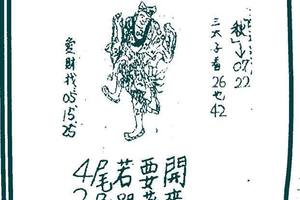 三太子看
26 也 42
→07.22
愛財找 05.15.25
4尾若要開